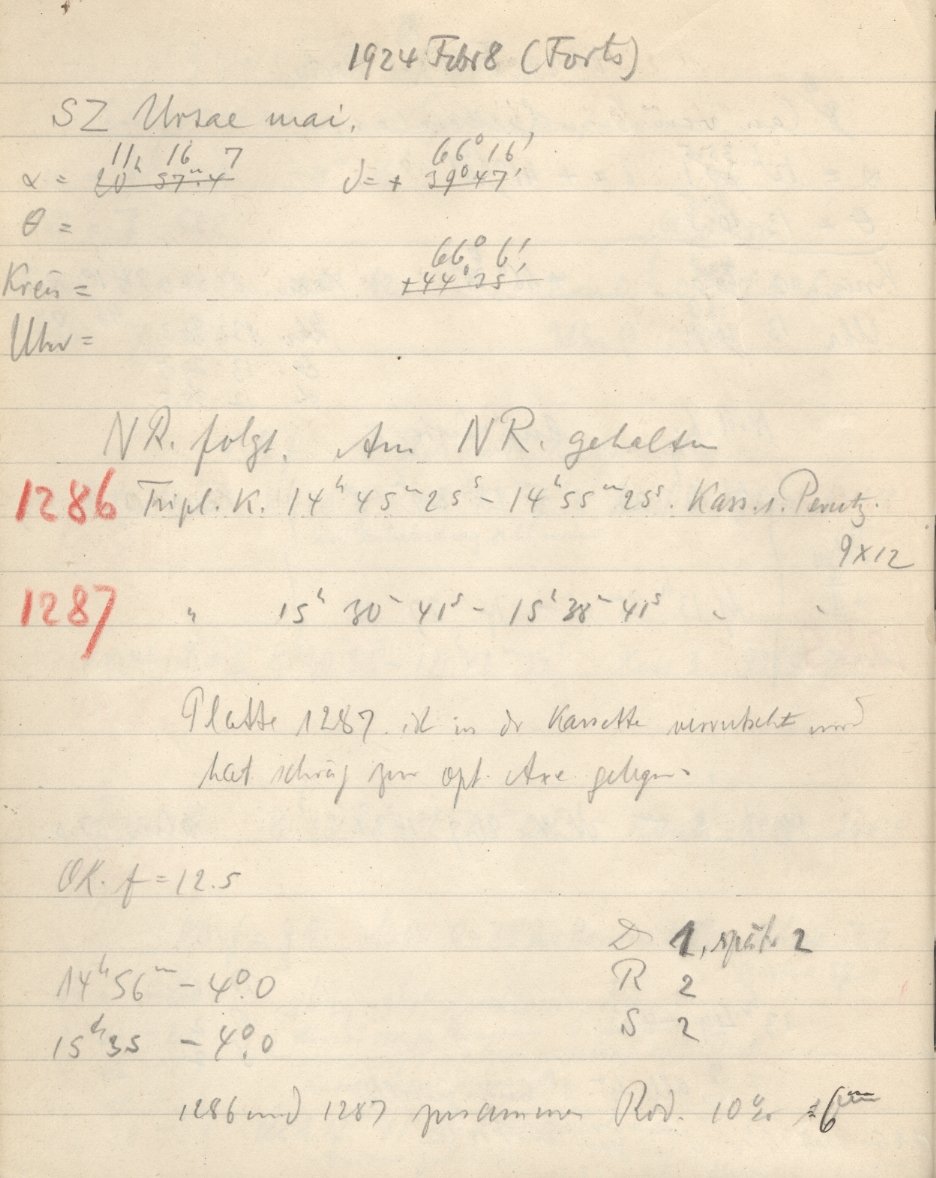 1924 Febr 8 (Forts)
SZ Ursae mai.
11 16 7 66° 16'
α = 20h 37m.4 δ = + 39° 47'
θ =
66° 6'
Kreis = +44° 25'
Uhr =
NR. folgt. Am NR. gehalten
1286 Tripl. K. 14h 45m 25s – 14h 55m 25s. Kass. 1. Perutz.
9x12
1287 " 15h 30m 41s – 15h 38m 41s " "
Platte 1287 ist in der Kassette verrutscht und
hat schräg zur opt. Axe gelegen.
OK. f = 12.5
D 1, spät. 2
14h 56m – 4°.0 R 2
15h 35 – 4°.0 S 2
1286 und 1287 zusammen Rod. 10% 6m